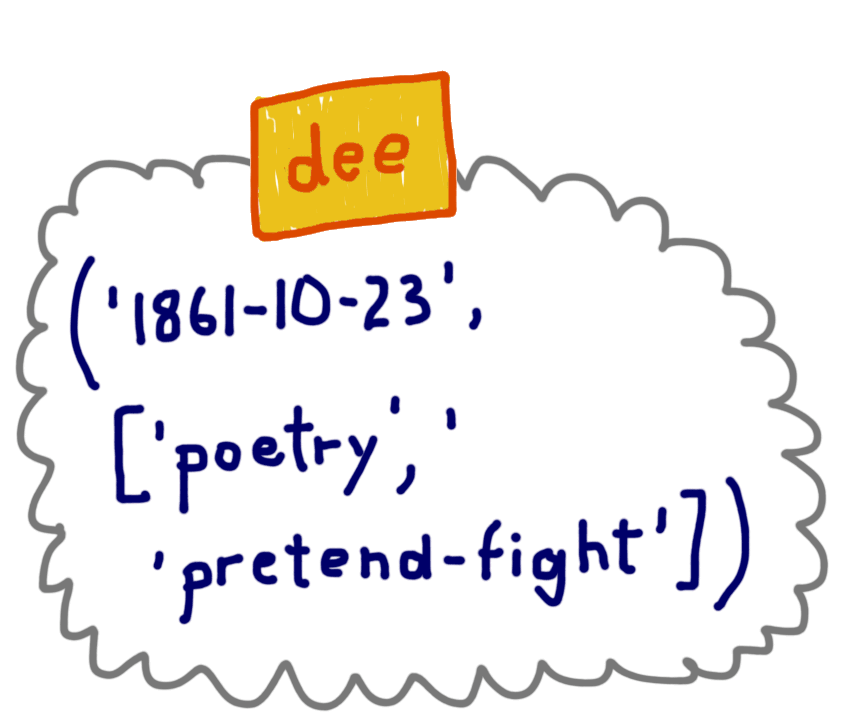 dee
('1861-10-23',
['poetry', '
'pretend-fight'])